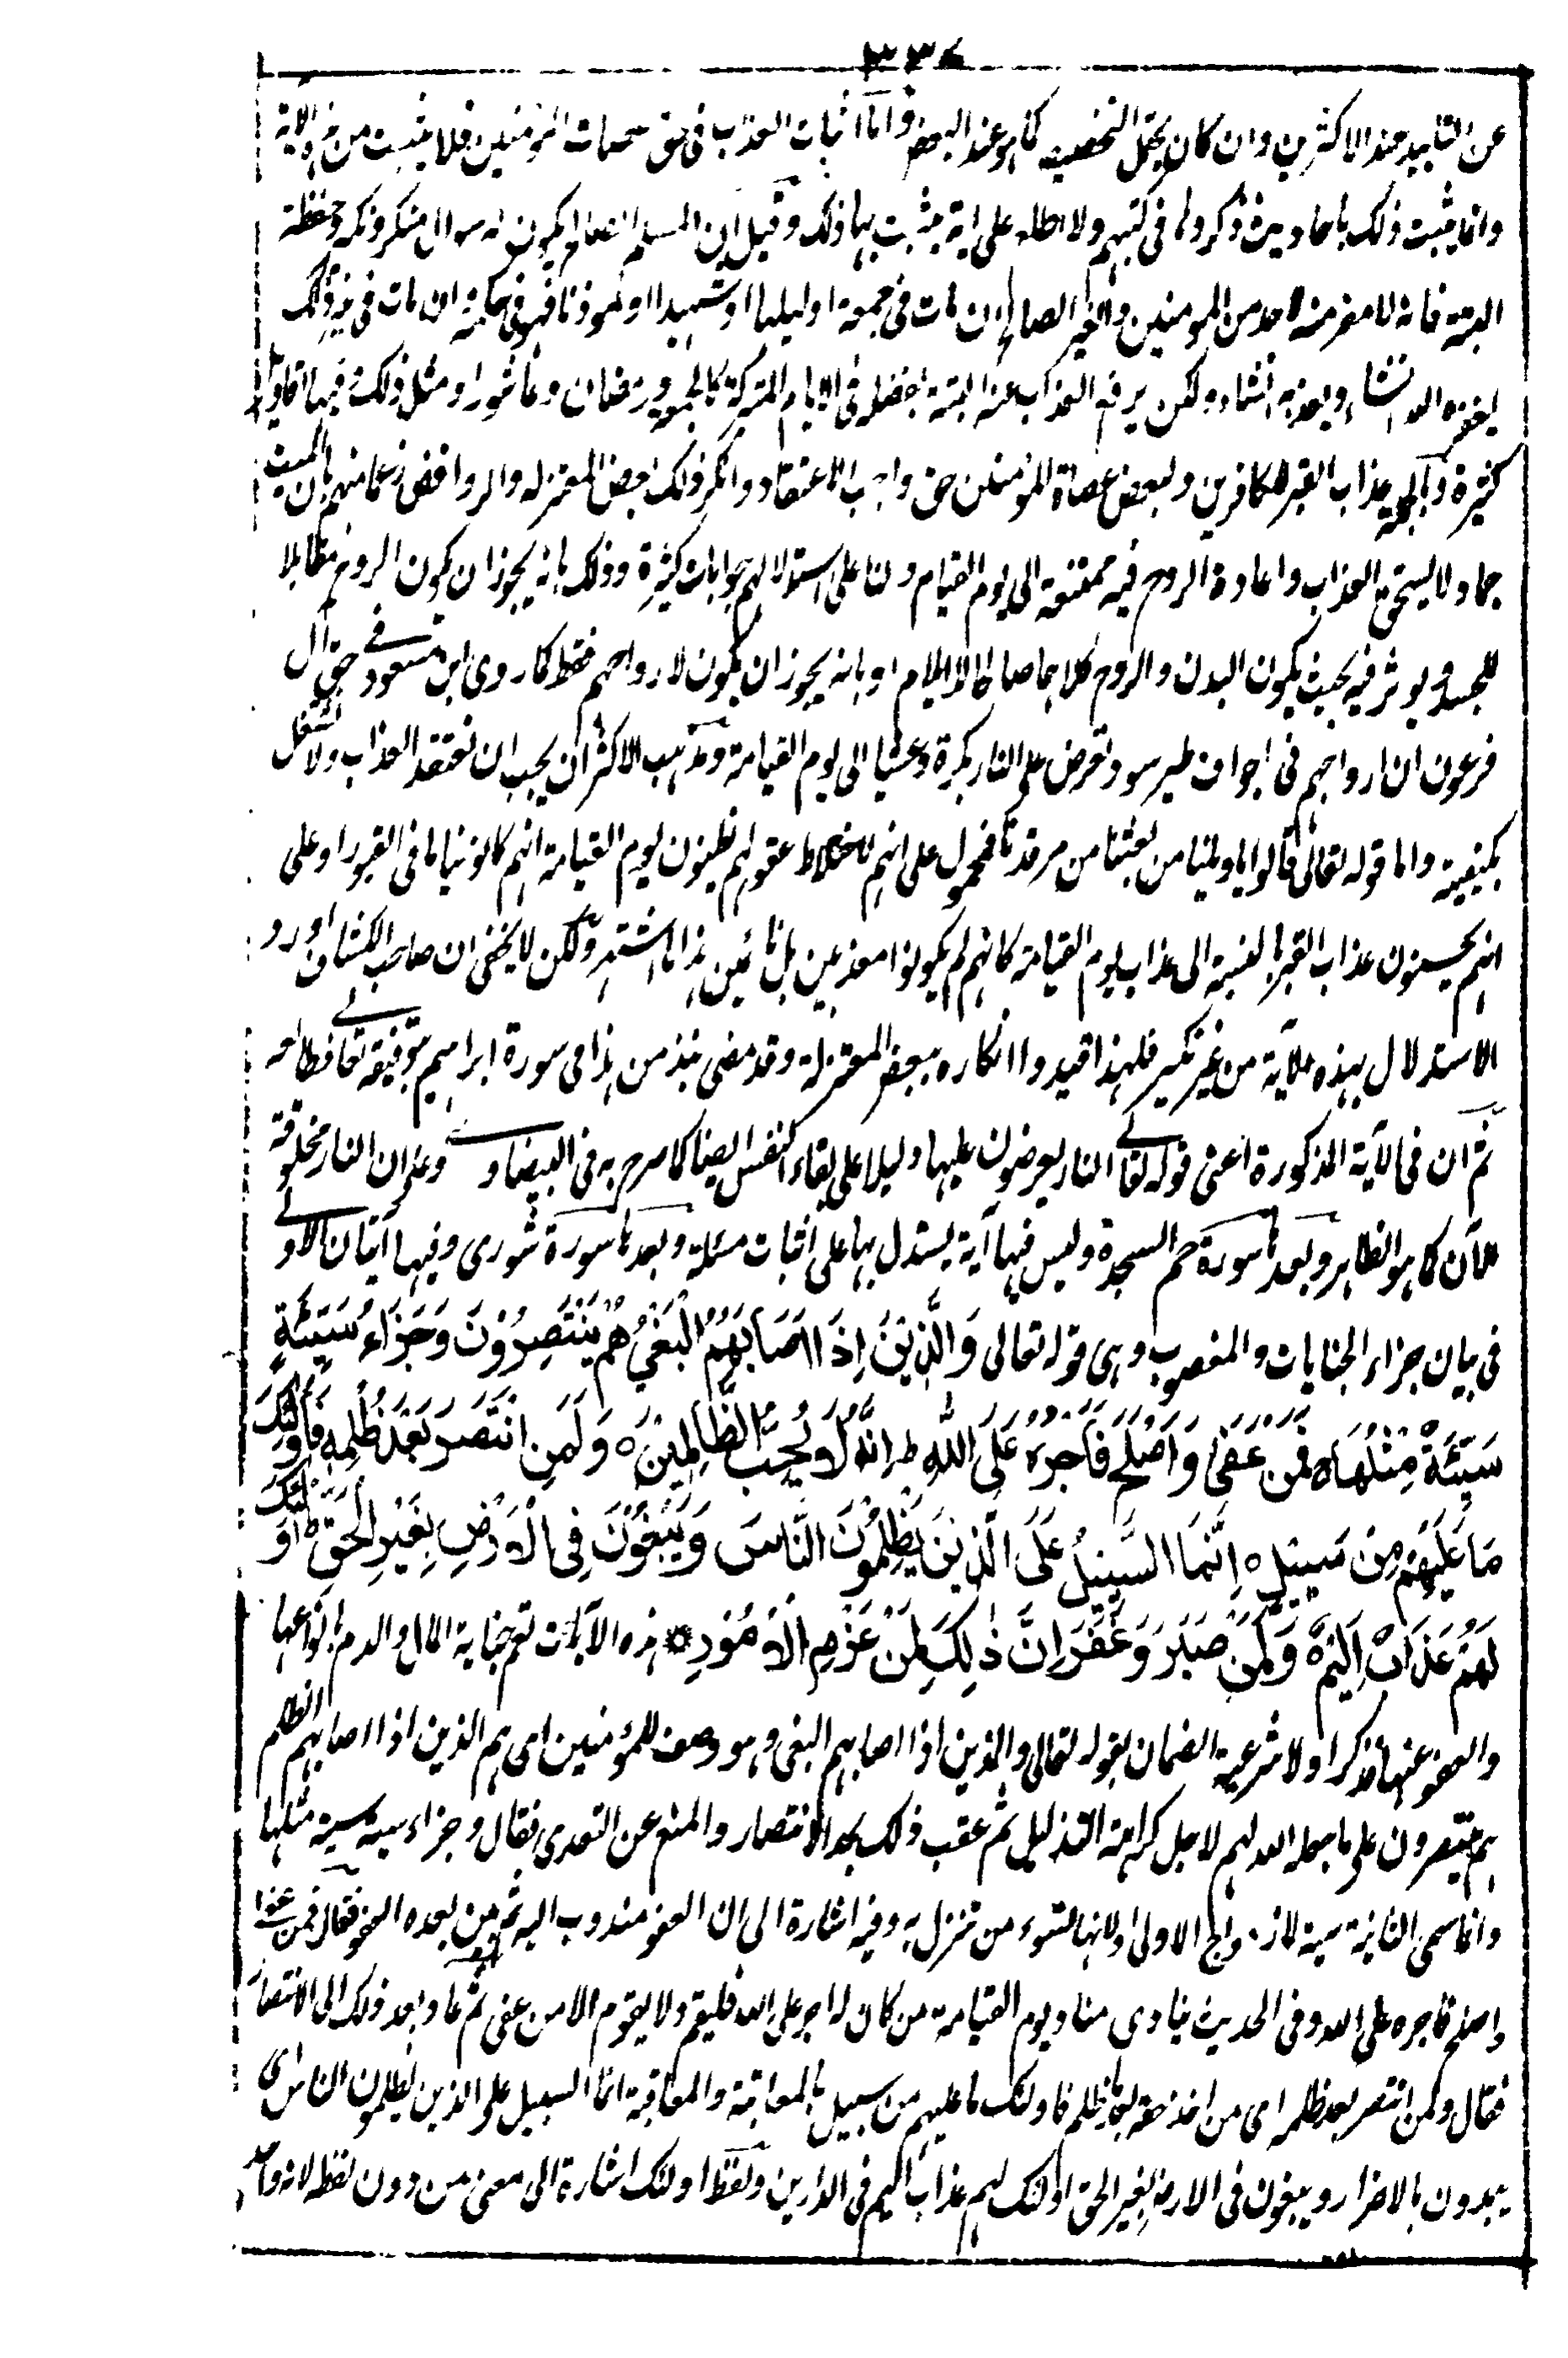 ٣٣٤
عن التابيد عند الاكثرين وان كان يحتمل التخصيص كما هو عند البعض واما اثبات العذاب فى حق عصاة المؤمنين فلا يثبت من هذه الآية
وانما يثبت ذلك باحاديث ذكروها فى كتبهم ولا اطلع على اية يثبت بها ذلك وقيل ان المسلم الصالح يكون له سوال منكر ونكير وضغطة
البتة فانه لا مفر منه لاحد من المومنين والغير الصالح ان مات فى جمعة او ليلها او شهيدا او مؤذنا فهو فى حكمه ان مات فى غير ذلك
يغفره الله انشاء ويعذبه انشاء ولكن يرفع العذاب عنه البتة بفضله فى الايام المتبركة كالجمعة ورمضان وعاشورا ومثل ذلك فيها اقاويل
كثيرة وبالجملة عذاب القبر للكافرين ولبعض عصاة المؤمنين حق واجب الاعتقاد وانكر ذلك بعض المعتزلة والروافض زعما منهم بان الميت
جماد لا يستحق العذاب واعادة الروح فيه ممتنعة الى يوم القيام ولنا على استدلالهم جوابات كثيرة وذلك بانه يجوز ان يكون الروح مقابلا
للجسد ويوثر فيه بحيث يكون البدن والروح كلاهما صالحا للايلام او بانه يجوز ان يكون لارواحهم فقط كما روى ابن مسعود فى حق آل
فرعون ان ارواحهم فى اجواف طير سود تعرض على النار بكرة وعشيا الى يوم القيامة ومذهب الاكثر ان يجب ان نعتقد العذاب ولا نشتغل
بكيفيته واما قوله تعالى قالوا ياويلنا من بعثنا من مرقدنا فمحمول على انهم لاختلاط عقولهم يظنون يوم القيامة انهم كانوا نياما فى القبور او على
انهم يحسبون عذاب القبر بالنسبة الى عذاب يوم القيامة كانهم لم يكونوا معذبين بل نائمين هذا ما اشتهر ولكن لا يخفى ان صاحب الكشاف اورد
الاستدلال بهذه الآية من غير نكير فلهذا قيدوا انكاره ببعض المعتزلة وقد مضى نبذ من هذا فى سورة ابراهيم بتوفيقه تعالى فطالعه
ثم ان فى الآية المذكورة اعنى قوله تعالى النار يعرضون عليها دليلا على بقاء النفس ايضا كما صرح به فى البيضاوى وعلى ان النار مخلوقة
الآن كما هو الظاهر وبعدها سورة حم السجدة وليس فيها آية يستدل بها على اثبات مسئلة وبعدها سورة شورى وفيها آيتان الاولى
فى بيان جزاء الجنايات والمغصوب وهى قوله تعالى وَالَّذِيْنَ اِذَا اَصَابَهُمُ الْبَغْيُ هُمْ يَنْتَصِرُوْنَ وَجَزَاءُ سَيِّئَةٍ
سَيِّئَةٌ مِّثْلُهَا ه فَمَنْ عَفَىٰ وَاَصْلَحَ فَاَجْرُهُ عَلَى اللّٰهِ ط اِنَّهُ لَا يُحِبُّ الظَّالِمِيْنَ ه وَلَمَنِ انْتَصَرَ بَعْدَ ظُلْمِهِ فَاُولٰئِكَ
مَا عَلَيْهِمْ مِنْ سَبِيْلٍ ه اِنَّمَا السَّبِيْلُ عَلَى الَّذِيْنَ يَظْلِمُوْنَ النَّاسَ وَيَبْغُوْنَ فِى الْاَرْضِ بِغَيْرِ الْحَقِّ ط اُولٰئِكَ
لَهُمْ عَذَابٌ اَلِيْمٌ ه وَلَمَنْ صَبَرَ وَغَفَرَ اِنَّ ذٰلِكَ لَمِنْ عَزْمِ الْاُمُوْرِ ۞ هذه الآيات تعم جناية المال والدم بانواعها
والعفو عنها فذكر اولا شرعية الضمان بقوله تعالى والذين اذا اصابهم البغى وهو وصف للمؤمنين اى هم الذين اذا اصابهم الظلم
هم ينتصرون على ما جعله الله لهم لاجل كراهة التذليل ثم عقب ذلك بحد الانتصار والمنع عن التعدى فقال وجزاء سيئة سيئة مثلها
وانما سمى الثانية سيئة للازدواج الاولى او لانها تسوء من تنزل به وفيه اشارة الى ان العفو مندوب اليه ثم بين بعده العفو فقال فمن عفا
واصلح فاجره على الله وفى الحديث ينادى مناد يوم القيامة من كان له اجر على الله فليقم ولا يقوم الا من عفى ثم عاد بعد ذلك الى الانتصار
فقال ولمن انتصر بعد ظلمه اى من اخذ حقه بعد ما ظلم فاولئك ما عليهم من سبيل بالمعاتبة والمعاقبة انما السبيل على الذين يظلمون الناس اى
يبدون بالاضرار ويبغون فى الارض بغير الحق اولئك لهم عذاب اليم فى الدارين ولفظ اولئك اشارة الى معنى من دون لفظه لانه واحد